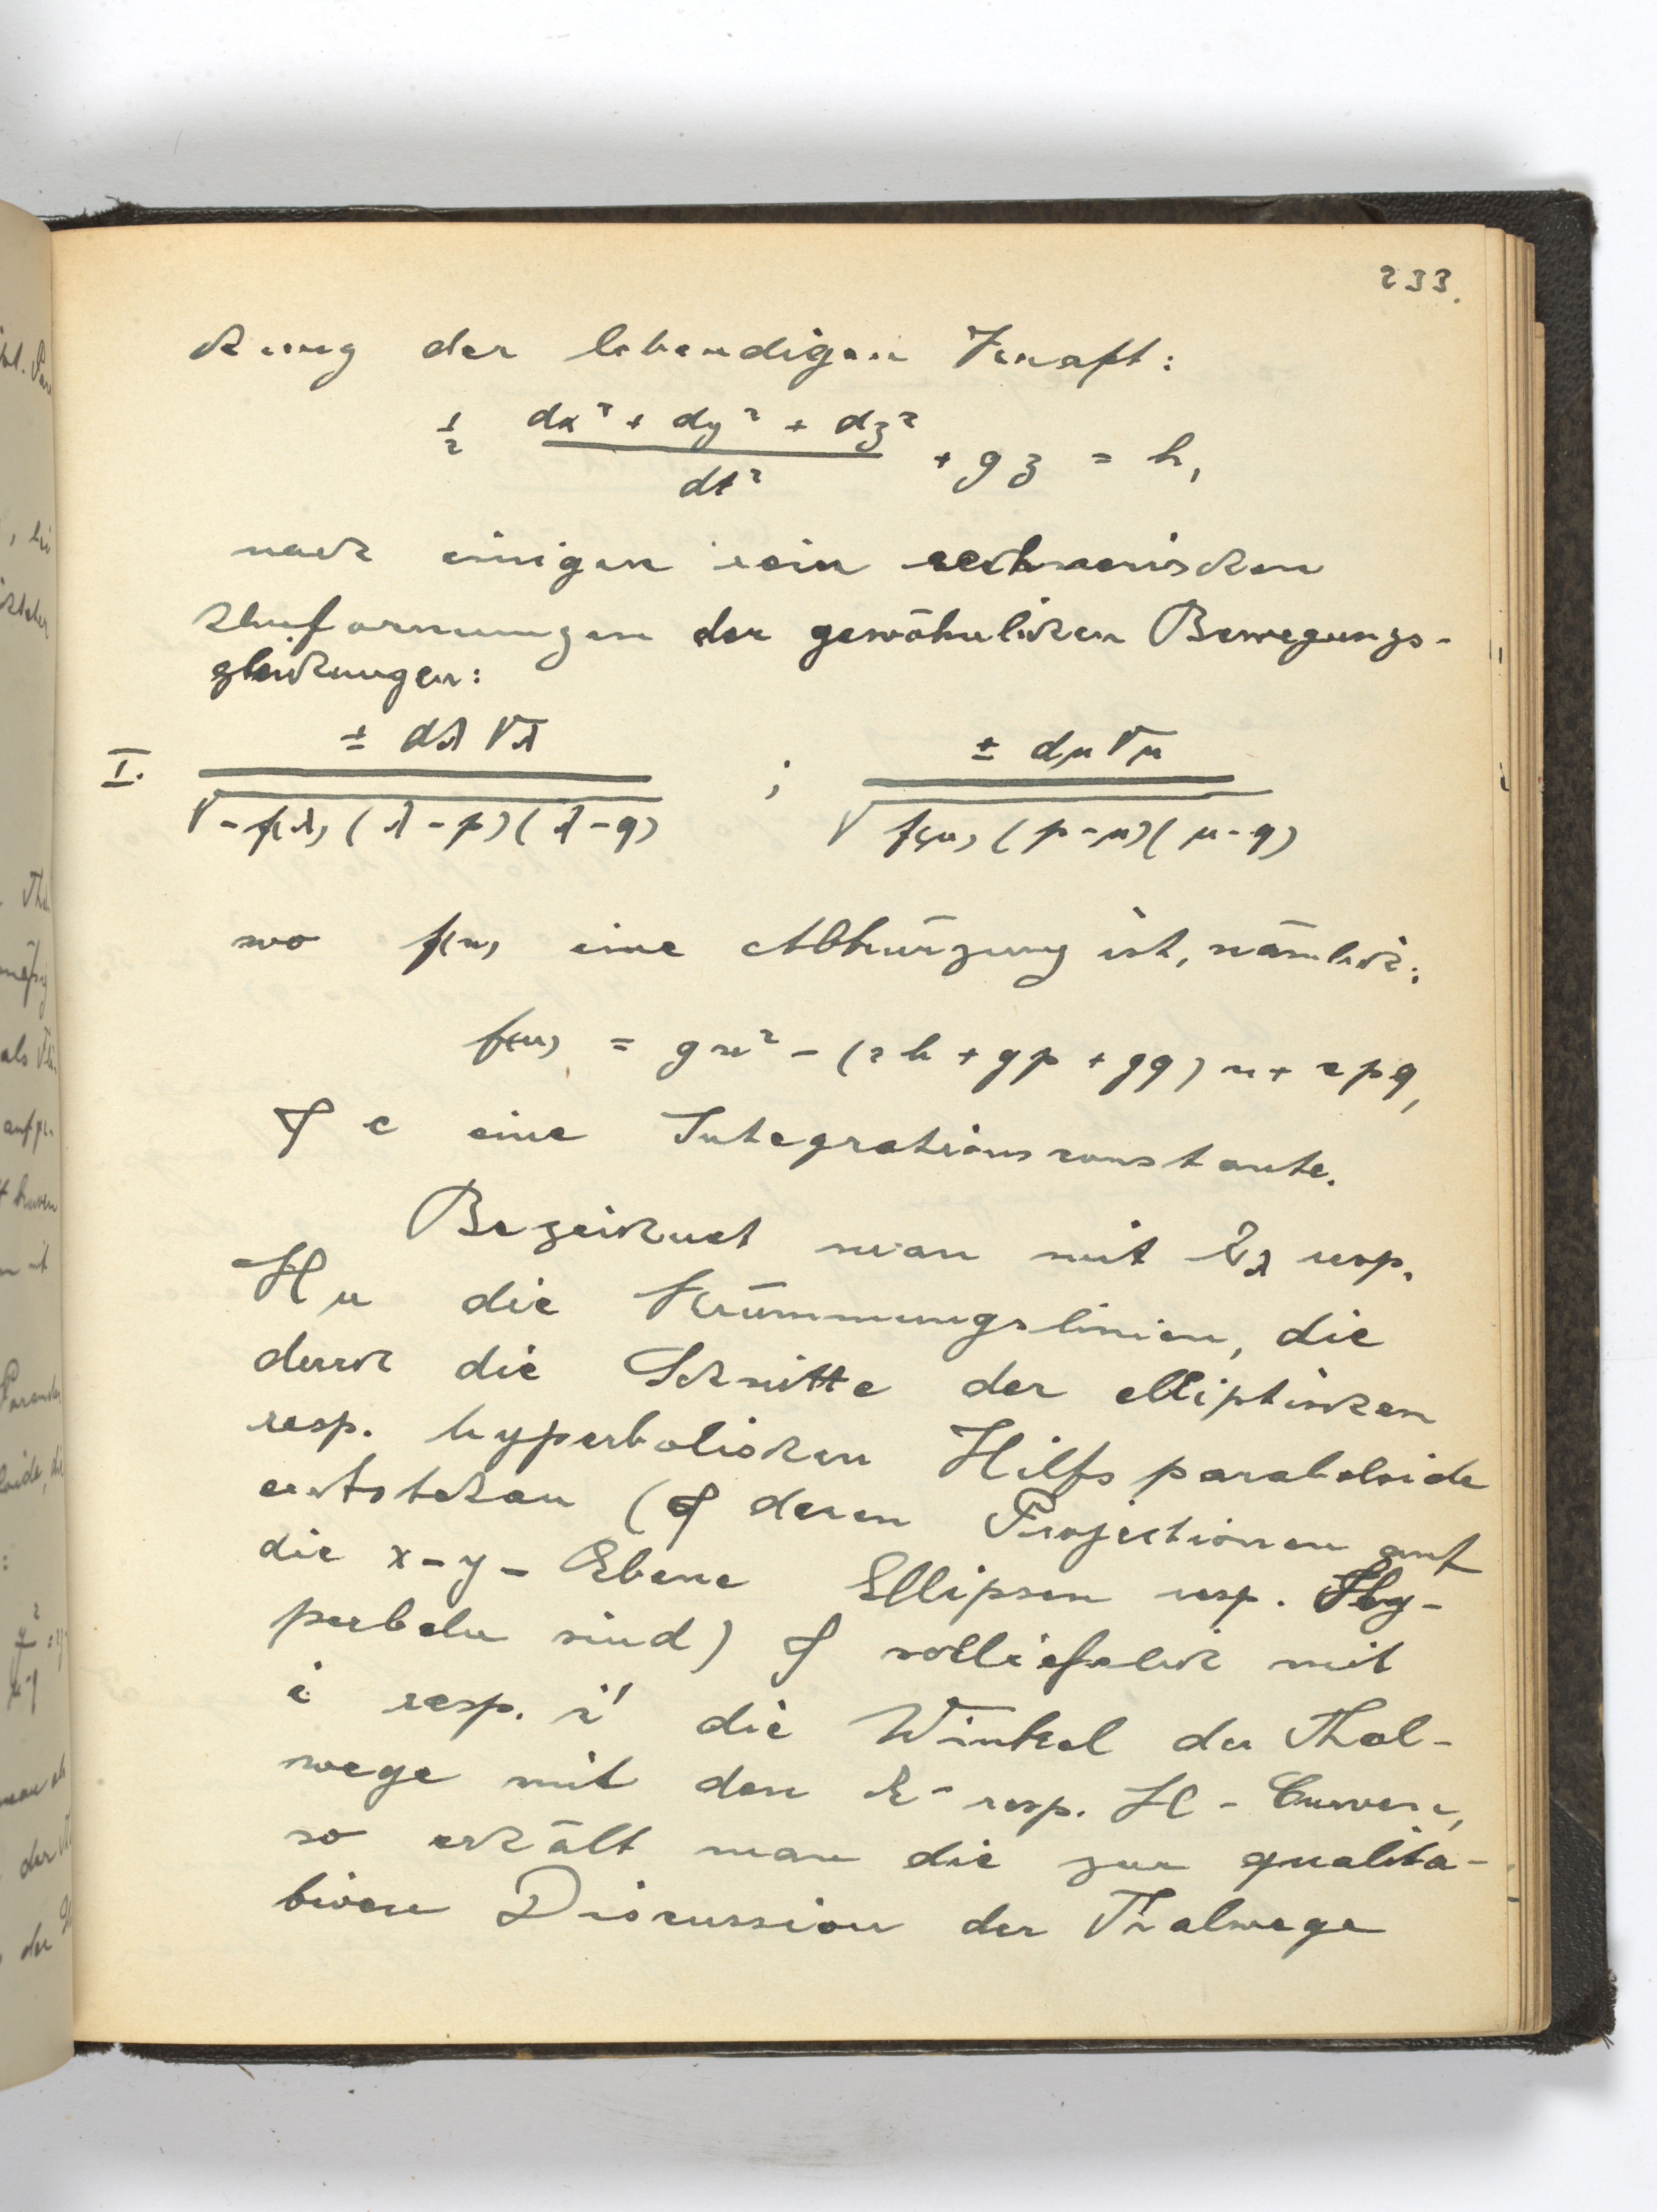 233.
chung der lebendigen Kraft:
½ (dx² + dy² + dz²)/dt² + gz = h,
nach einigen rein rechnerischen
Umformungen der gewöhnlichen Bewegungs-
gleichungen:
I. ± dλ √λ / √-f(λ)(λ-p)(λ-q) ; ± dμ √μ / √f(μ)(p-μ)(μ-q)
wo f(u) eine Abkürzung ist, nämlich:
f(u) = gu² - (2h + gp + gq)u + cpq,
& c eine Integrationsconstante.
Bezeichnet man mit Eλ resp.
Hμ die Krümmungslinien, die
durch die Schnitte der elliptischen
resp. hyperbolischen Hilfsparaboloide
entstehen (& deren Projectionen auf
die x-y-Ebene Ellipsen resp. Hy-
perbeln sind) & schließlich mit
i resp. i' die Winkel der Thal-
wege mit den E- resp. H-Curven,
so erhält man die zur qualita-
tiven Discussion der Thalwege